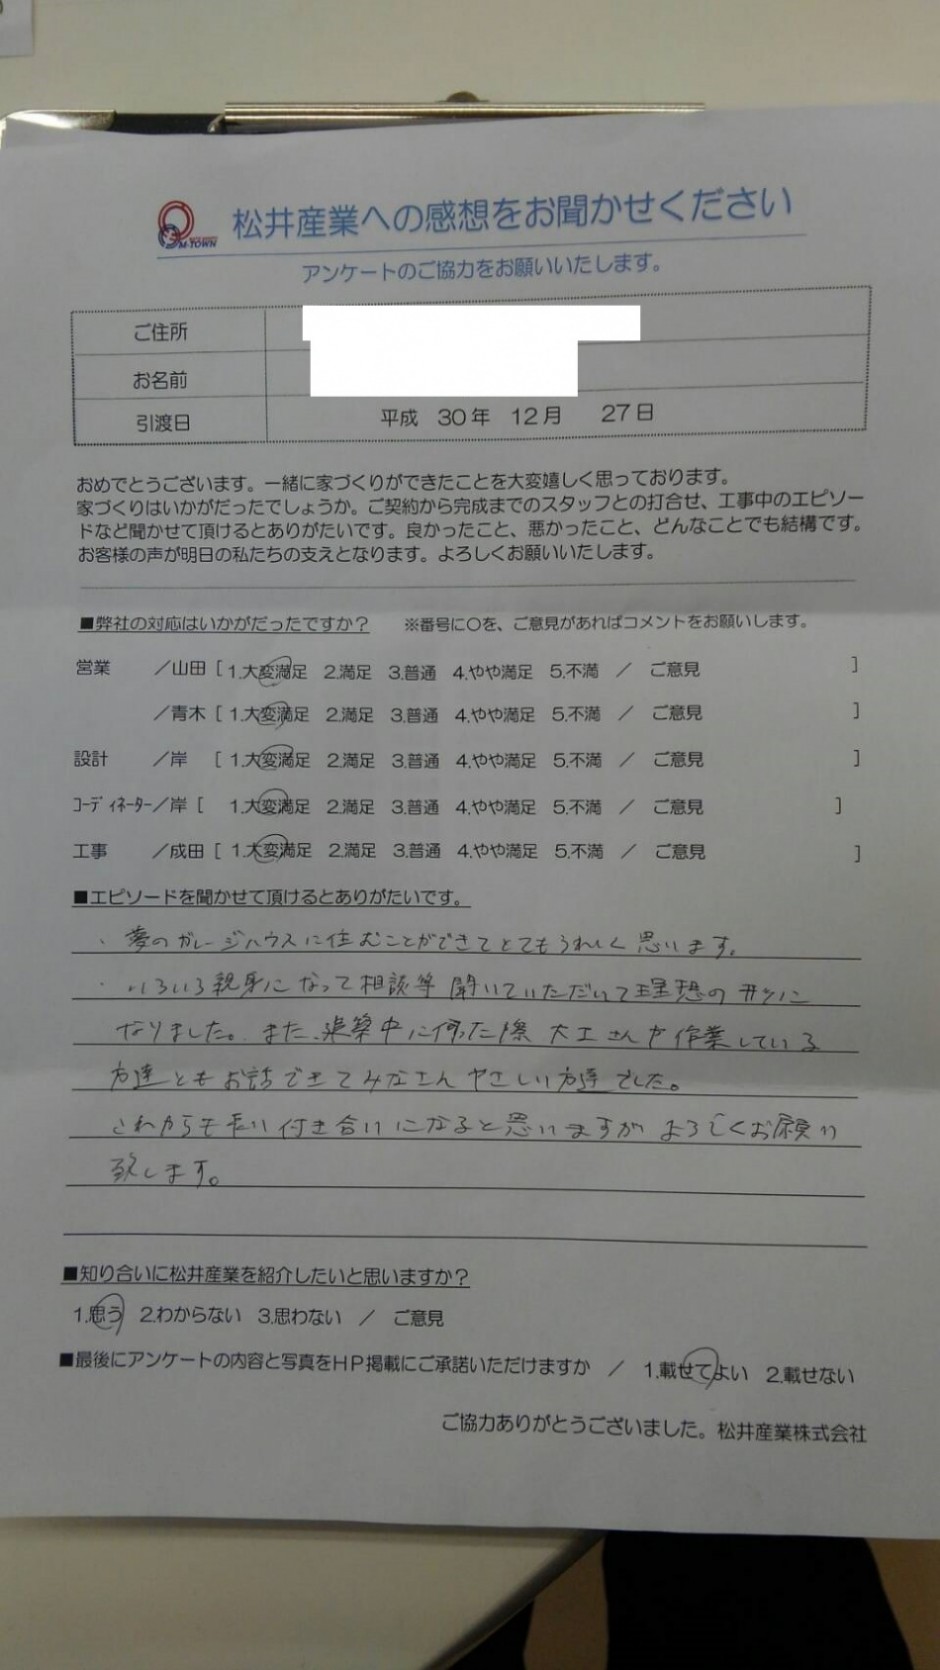 M-TOWN
松井産業への感想をお聞かせください
アンケートのご協力をお願いいたします。
ご住所
お名前
引渡日 平成 30年 12月 27日
おめでとうございます。一緒に家づくりができたことを大変嬉しく思っております。
家づくりはいかがだったでしょうか。ご契約から完成までのスタッフとの打合せ、工事中のエピソー
ドなど聞かせて頂けるとありがたいです。良かったこと、悪かったこと、どんなことでも結構です。
お客様の声が明日の私たちの支えとなります。よろしくお願いいたします。
■弊社の対応はいかがだったですか? ※番号に○を、ご意見があればコメントをお願いします。
営業 /山田 [ 1.大変満足 2.満足 3.普通 4.やや満足 5.不満 / ご意見 ]
/青木 [ 1.大変満足 2.満足 3.普通 4.やや満足 5.不満 / ご意見 ]
設計 /岸 [ 1.大変満足 2.満足 3.普通 4.やや満足 5.不満 / ご意見 ]
コーディネーター/岸 [ 1.大変満足 2.満足 3.普通 4.やや満足 5.不満 / ご意見 ]
工事 /成田 [ 1.大変満足 2.満足 3.普通 4.やや満足 5.不満 / ご意見 ]
■エピソードを聞かせて頂けるとありがたいです。
・夢のガレージハウスに住むことができてとてもうれしく思います。
・いろいろ親身になって相談等聞いていただいて理想の
なりました。また、築中に伺った際 大工さんや作業している
方達ともお話できてみなさんやさしい方達でした。
これからも長い付き合いになると思いますがよろしくお願い
致します。
■知り合いに松井産業を紹介したいと思いますか?
1.思う 2.わからない 3.思わない / ご意見
■最後にアンケートの内容と写真をHP掲載にご承諾いただけますか / 1.載せてよい 2.載せない
ご協力ありがとうございました。松井産業株式会社